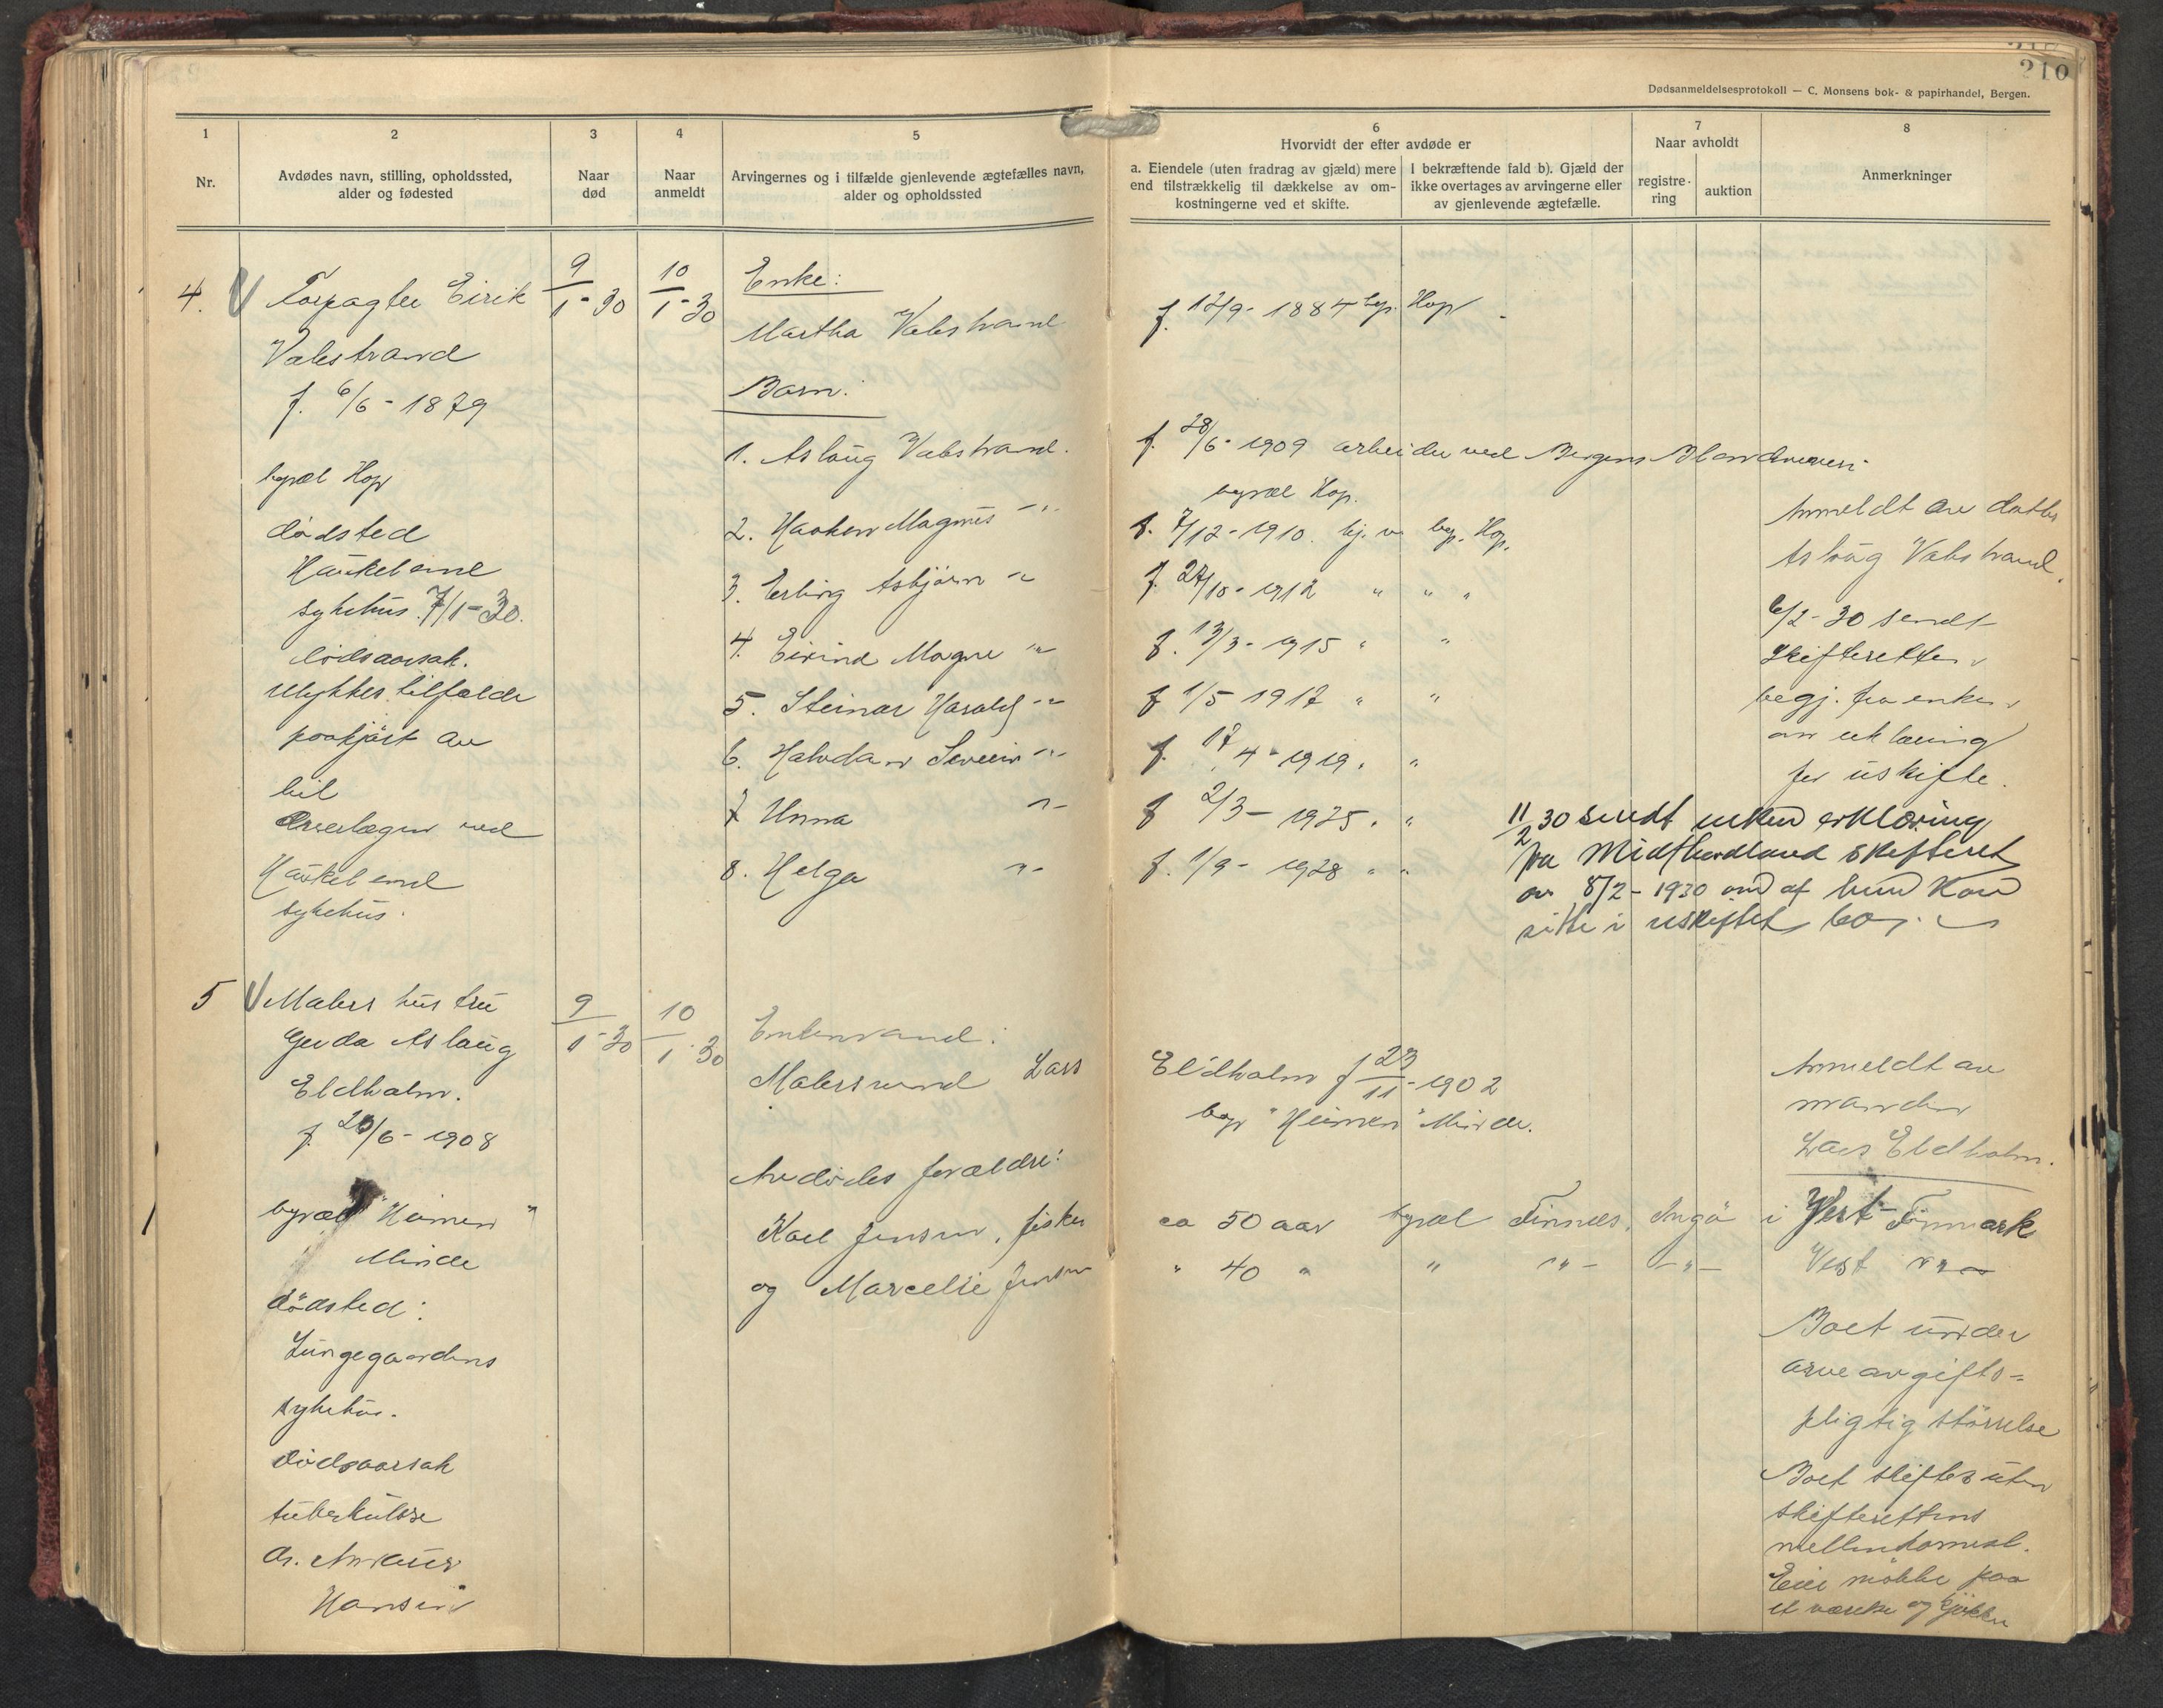 210
Dødsanmeldelsesprotokoll — C. Monsens bok- & papirhandel, Bergen.
1
2
3
4
5
6
7
8
Nr.
Avdødes navn, stilling, opholdssted,
alder og fødested
Naar
død
Naar
anmeldt
Arvingernes og i tilfælde gjenlevende ægtefælles navn,
alder og opholdssted
Hvorvidt der efter avdøde er
a. Eiendele (uten fradrag av gjæld) mere
end tilstrækkelig til dækkelse av om-
kostningerne ved et skifte.
I bekræftende fald b). Gjæld der
ikke overtages av arvingerne eller
av gjenlevende ægtefælle.
Naar avholdt
registre-
ring
auktion
Anmerkninger
4. Forpagter Eirik
Valestrand
f. 6/6 - 1879
bopæl Hop
dødsted
Haukeland
sykehus. 7/1-30.
Dödsaarsak.
ulykkestilfælde
paakjört av
bil
Overlægen ved
Haukeland
sykehus.
9/1-30
10/1-30
Enke:
Martha Valestrand f. 12/9-1884 bop. Hop
Barn:
1. Aslaug Valestrand. f. 28/6-1909 arbeider ved Bergens
bopæl Hop.
2. Haakon Magnus -"- f. 7/12-1910. hj. v. bop. Hop.
3. Erling Asbjörn -"- f. 27/10-1912 " " "
4. Eivind Magne -"- f. 13/3-1915 " "
5. Steinar Harald -"- f 1/5 1917 " "
6. Halvdan Severin -"- f. 17/4-1919. "
7 Unna -"- f 2/3-1925. "
8. Helga -"- f. 1/9-1928 " "
Anmeldt av datter
Aslaug Valestrand.
6/2-30 sendt
Skifteretten
begj. fra enken
om erklæring
for uskifte.
11/2 30 sendt enken erklæring
fra Midthordland skifteret
av 8/2-1930 om at hun kan
sitte i uskiftet bo.
5 Malers hustru
Gerda Aslaug
Eldholm.
f. 20/6-1908
bopæl "Heimen"
Minde
dödsted:
Lungegaardens
sykehus.
Dödsaarsak
tuberkulose
dr.
Hansen
9/1-30
10/1-30
Enkemand:
Malersvend Lars Eldholm f 23/11-1902
bop "Heimen" Minde.
Avdödes forældre:
Karl Jensen, fisker ca 50 aar bopæl Finnes, Ingö i Vest-Finmark
og Marcelie Jensen " 40 " " -"- -"- Vest -"-
Anmeldt av
manden
Lars Eldholm.
Boet under
arveavgifts-
pligtig störrelse
Boet skiftes uten
skifterettens
mellemkomst.
Eier möbler paa
et værelse og kjökken